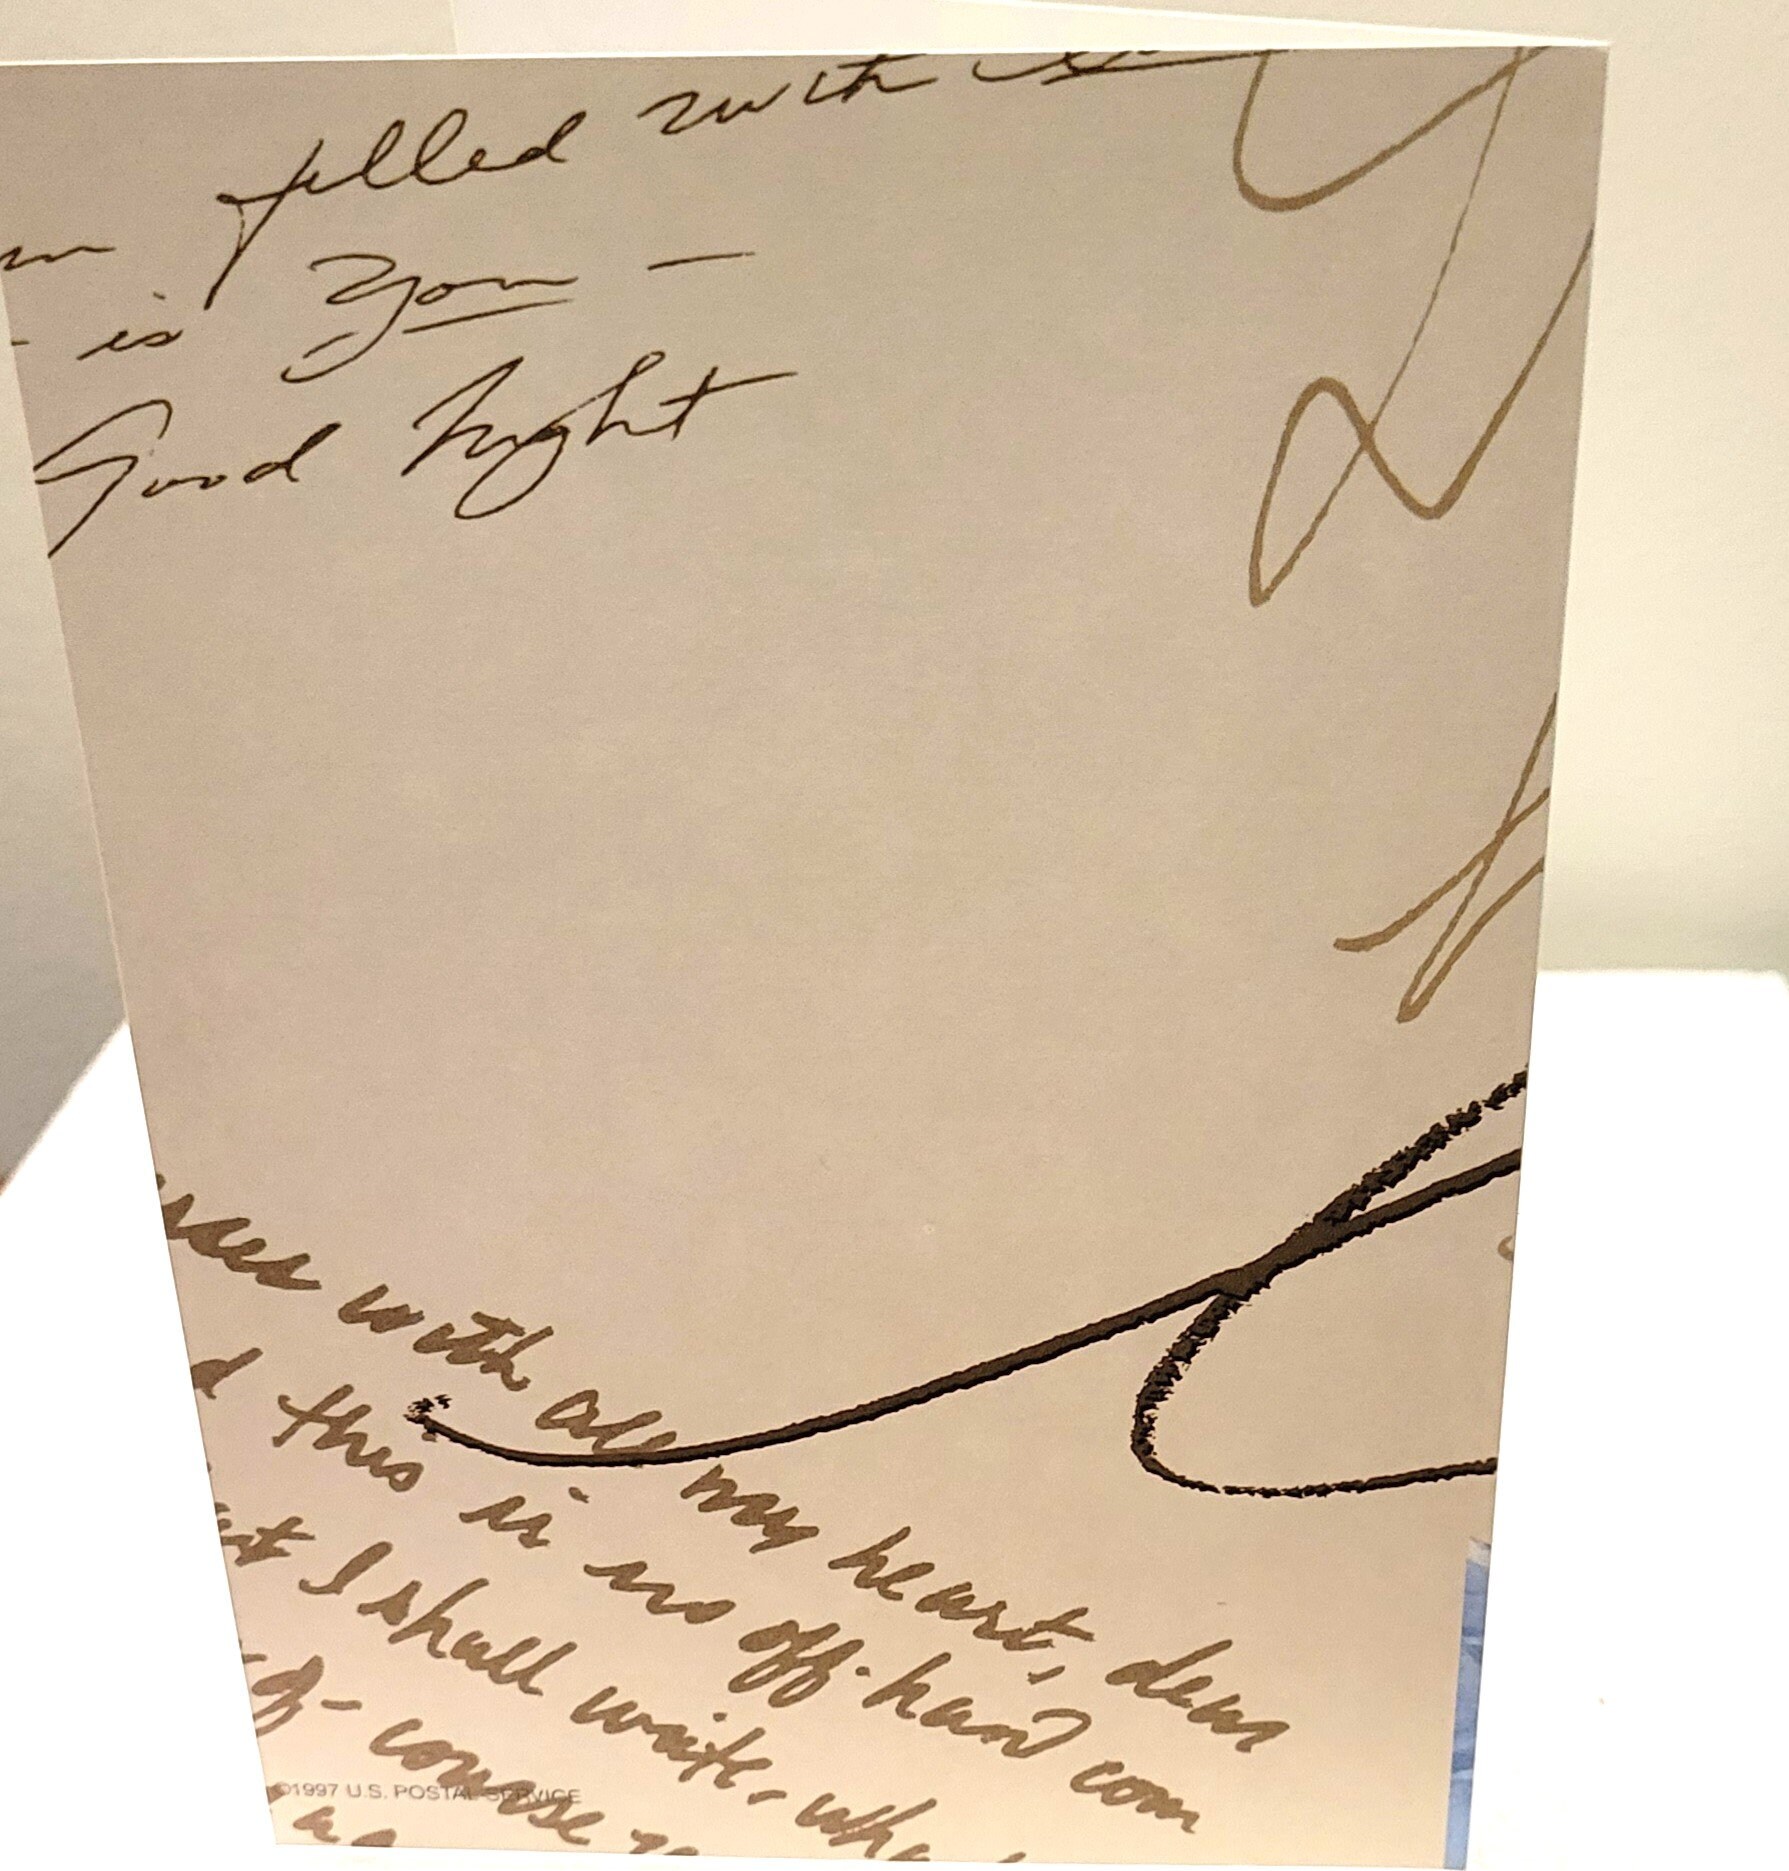 filled with
is You —
Good night
with all my heart, dear
this is no off-hand com
I shall write, wha
of course
©1997 U.S. POSTAL SERVICE